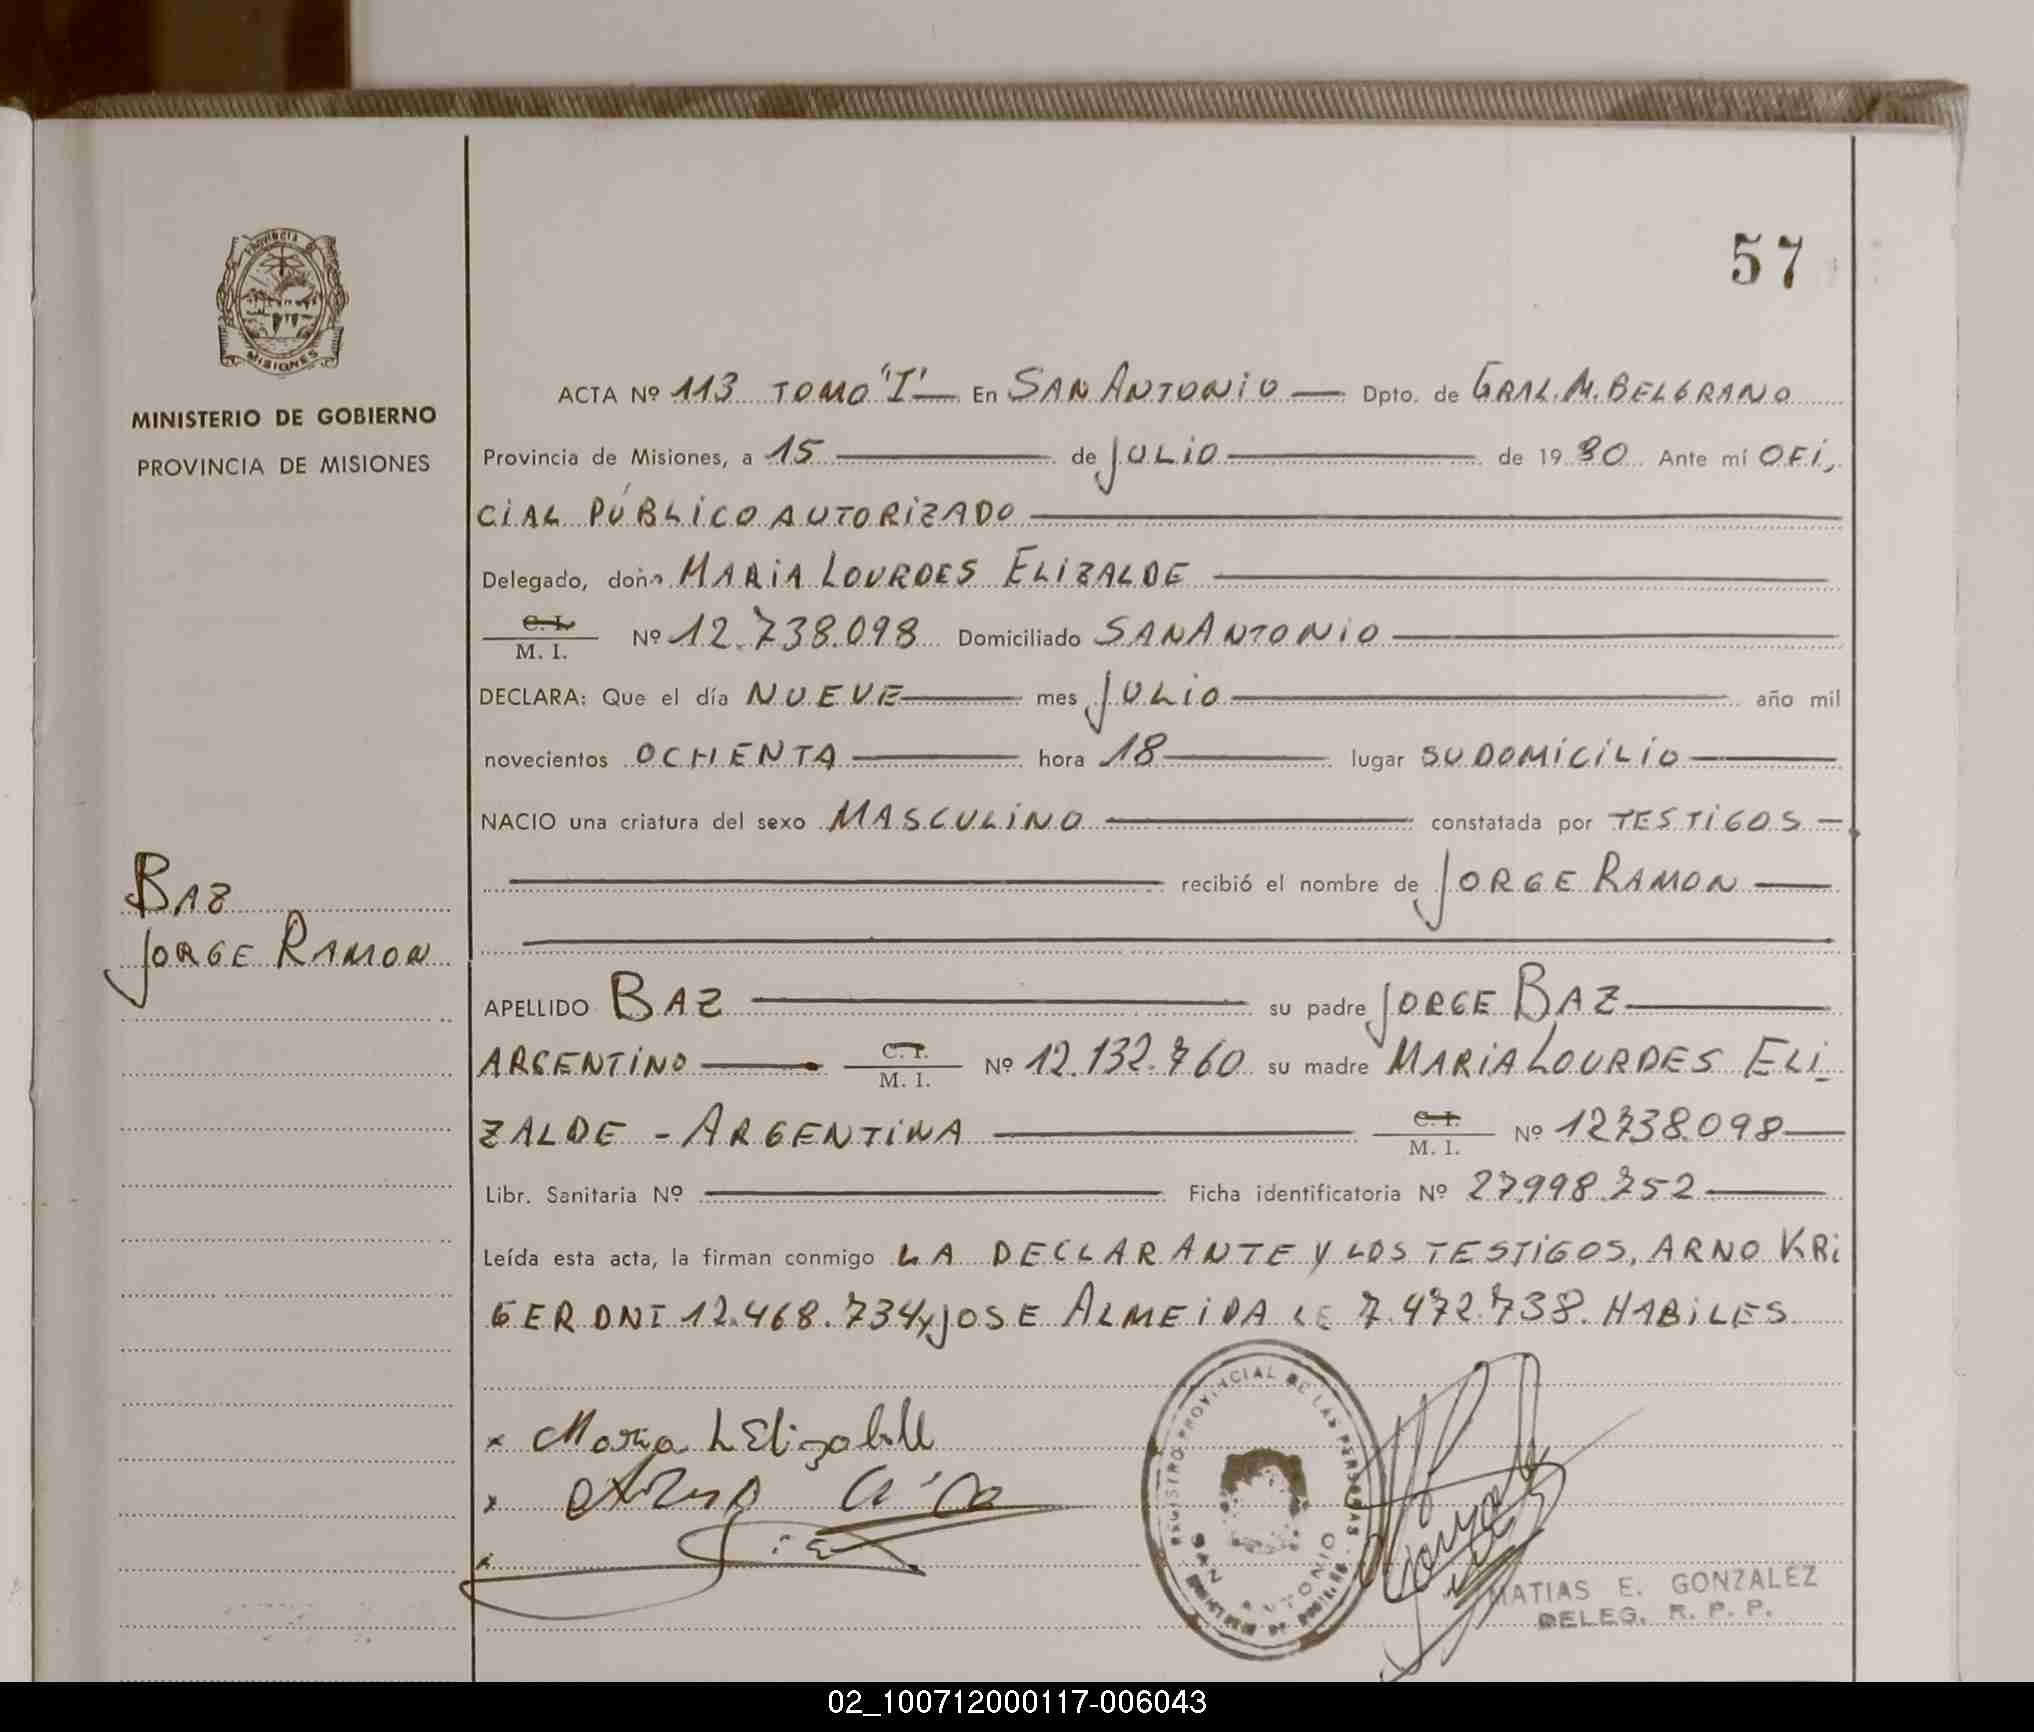 57
PROVINCIA DE
MISIONES
MINISTERIO DE GOBIERNO
PROVINCIA DE MISIONES
BAZ
JORGE RAMON
ACTA Nº 113 TOMO "I" En SAN ANTONIO Dpto. de GRAL. M. BELGRANO
Provincia de Misiones, a 15 de JULIO de 1980 Ante mí OFI,
CIAL PÚBLICO AUTORIZADO
Delegado, doña MARIA LOURDES ELIZALDE
C. I.
M. I. Nº 12.738.098 Domiciliado SAN ANTONIO
DECLARA: Que el día NUEVE mes JULIO año mil
novecientos OCHENTA hora 18 lugar SU DOMICILIO
NACIO una criatura del sexo MASCULINO constatada por TESTIGOS
recibió el nombre de JORGE RAMON
APELLIDO BAZ su padre JORGE BAZ
ARGENTINO C. I.
M. I. Nº 12.132.760 su madre MARIA LOURDES ELI
ZALDE - ARGENTINA C. I.
M. I. Nº 12738.098
Libr. Sanitaria Nº Ficha identificatoria Nº 27.998.752
Leída esta acta, la firman conmigo LA DECLARANTE Y LOS TESTIGOS, ARNO KRI
GER DNI 12.468.734 y JOSE ALMEIDA LE 7.472.738. HABILES
x Maria L Elizalde
x
REGISTRO PROVINCIAL DE LAS PERSONAS
SAN ANTONIO
MATIAS E. GONZALEZ
DELEG. R. P. P.
02_100712000117-006043